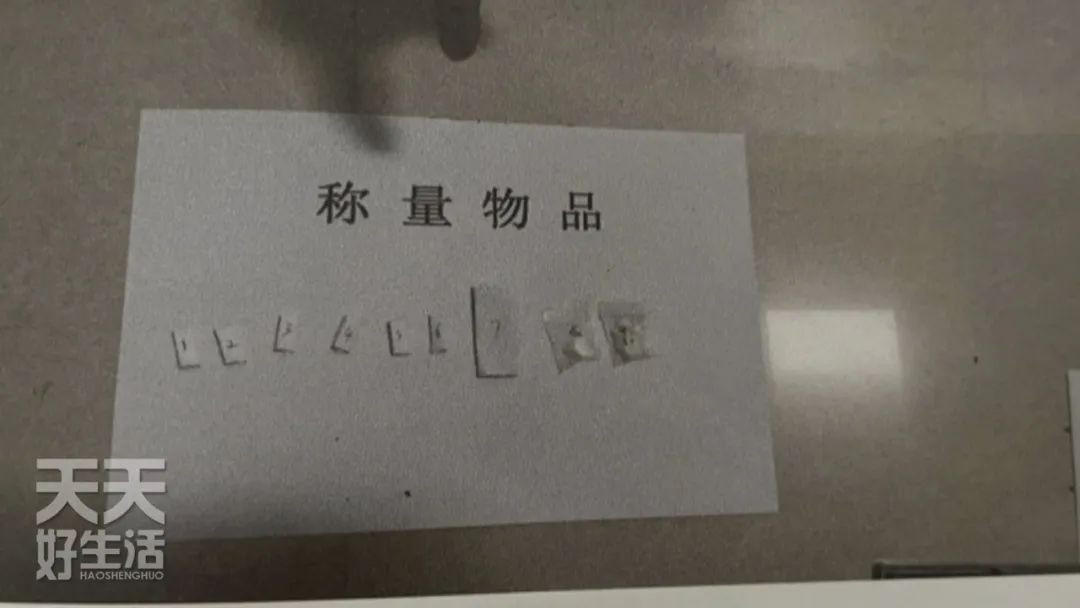 称量物品
1 2 3 4 5 6 7
天天
好生活
HAOSHENGHUO